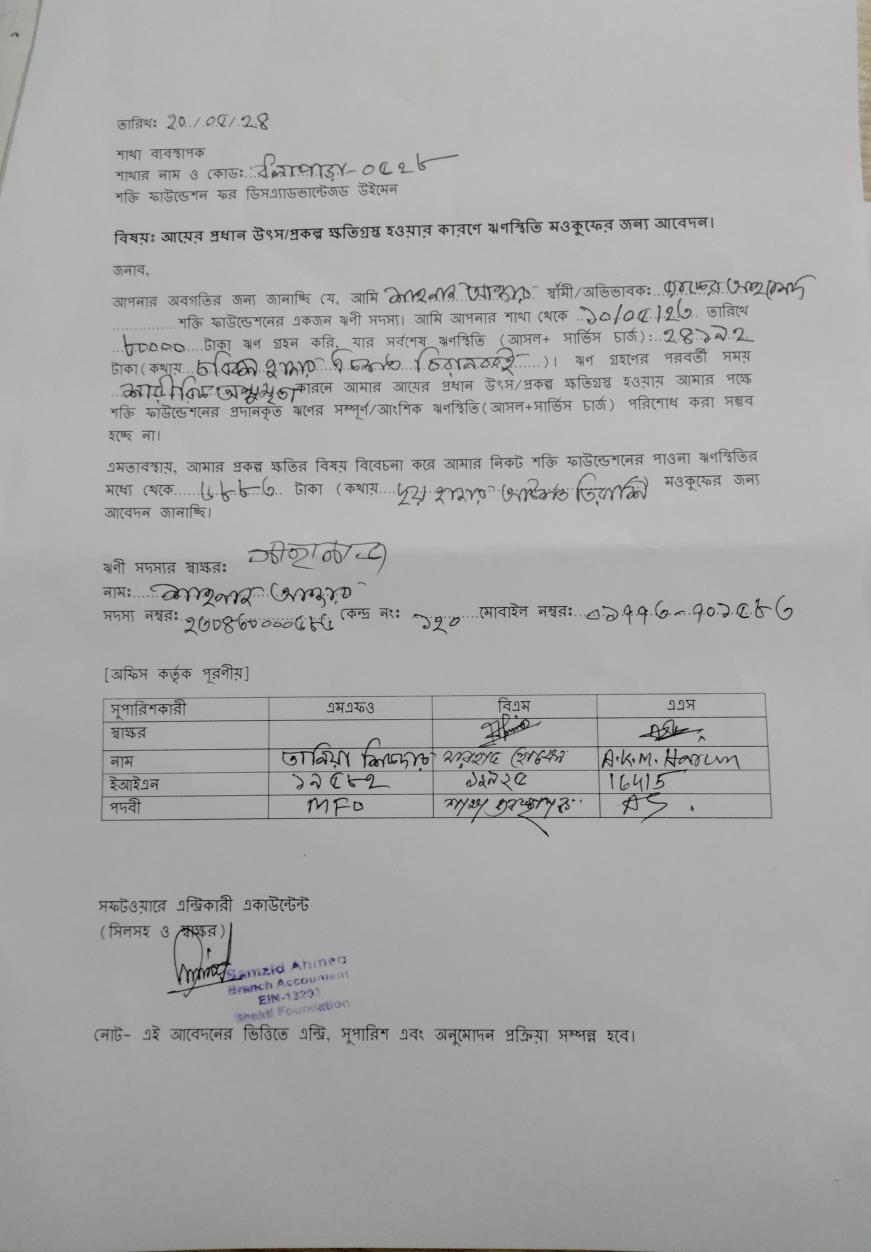 তারিখঃ 20/05/24
শাখা ব্যবস্থাপক
শাখার নাম ও কোডঃ...-০৫২৮
শক্তি ফাউন্ডেশন ফর ডিসএ্যাডভান্টেজড উইমেন
বিষয়ঃ আয়ের প্রধান উৎস/প্রকল্প ক্ষতিগ্রস্থ হওয়ার কারণে ঋণস্থিতি মওকুফের জন্য আবেদন।
জনাব,
আপনার অবগতির জন্য জানাচ্ছি যে, আমি আক্তার স্বামী/অভিভাবকঃ
শক্তি ফাউন্ডেশনের একজন ঋনী সদস্য। আমি আপনার শাখা থেকে ১০/০৫/২৩ তারিখে
৮০০০০ টাকা ঋণ গ্রহন করি, যার সর্বশেষ ঋণস্থিতি (আসল+ সার্ভিস চার্জ)ঃ
টাকা(কথায় চব্বিশ হাজার )। ঋণ গ্রহণের পরবর্তী সময়
শারীরিক অসুস্থতা কারনে আমার আয়ের প্রধান উৎস/প্রকল্প ক্ষতিগ্রস্থ হওয়ায় আমার পক্ষে
শক্তি ফাউন্ডেশনের প্রদানকৃত ঋণের সম্পূর্ণ/আংশিক ঋণস্থিতি(আসল+সার্ভিস চার্জ) পরিশোধ করা সম্ভব
হচ্ছে না।
এমতাবস্থায়, আমার প্রকল্প ক্ষতির বিষয় বিবেচনা করে আমার নিকট শক্তি ফাউন্ডেশনের পাওনা ঋণস্থিতির
মধ্যে থেকে ৬৮৮৩ টাকা (কথায় ছয় হাজার আটশত তিরাশি মওকুফের জন্য
আবেদন জানাচ্ছি।
ঋনী সদস্যর স্বাক্ষরঃ
নামঃ আক্তার
সদস্য নম্বরঃ কেন্দ্র নংঃ ১২০ মোবাইল নম্বরঃ ০১৭৭৩-৭০১৫৮৩
[অফিস কর্তৃক পূরনীয়]
সুপারিশকারী এমএফও বিএম এএস
স্বাক্ষর
নাম তানিয়া ফরহাদ হোসেন A.K.M. Harun
ইআইএন ১৯৫৮২ ১২৯২৫ 16415
পদবী MFO শাখা ব্যবস্থাপক AS.
সফটওয়্যারে এন্ট্রিকারী একাউন্টেন্ট
(সিলসহ ও স্বাক্ষর)
Samzid Ahmed
Branch Accountant
EIN-13203
Shakti Foundation
নোট- এই আবেদনের ভিত্তিতে এন্ট্রি, সুপারিশ এবং অনুমোদন প্রক্রিয়া সম্পন্ন হবে।